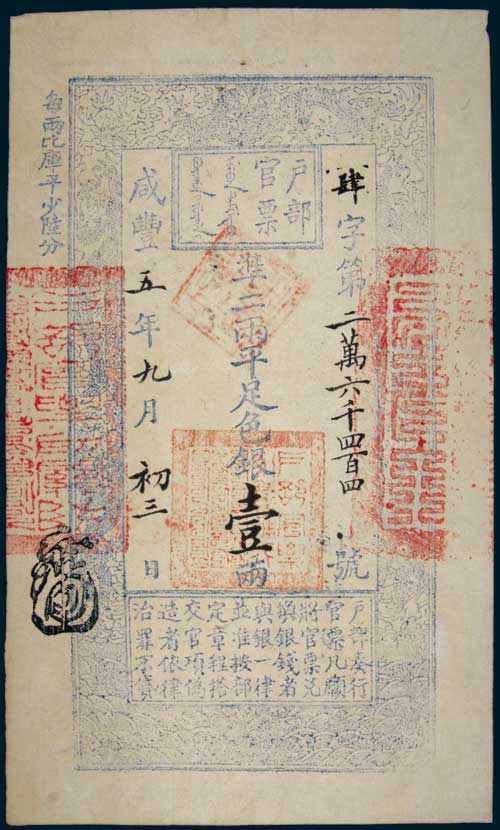 戶部
官票
肆字第二萬六千四百四號
準二兩平足色銀壹兩
咸豐五年九月初三日
每兩比庫平少陸分
戶部奏行
官票凡願
將官票兌
換銀錢者
與銀一律
並准按部
定章程搭
交官項偽
造者依律
治罪不貸